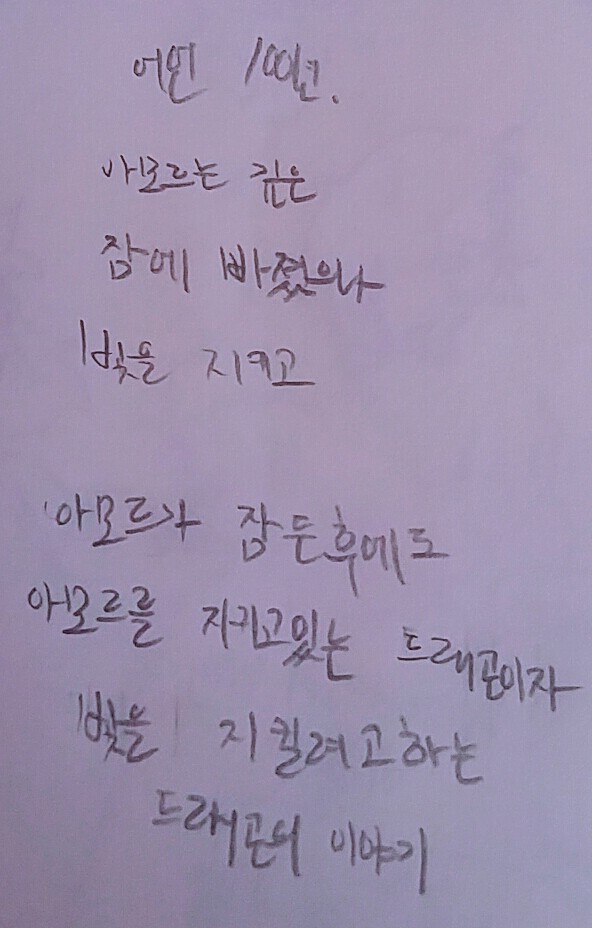 어떤 100년.
아모르는 깊은
잠에 빠졌으나
빛을 지키고
아모르가 잠든후에도
아모르를 지키고있는 드래곤이자
빛을 지킬려고하는
드래곤의 이야기